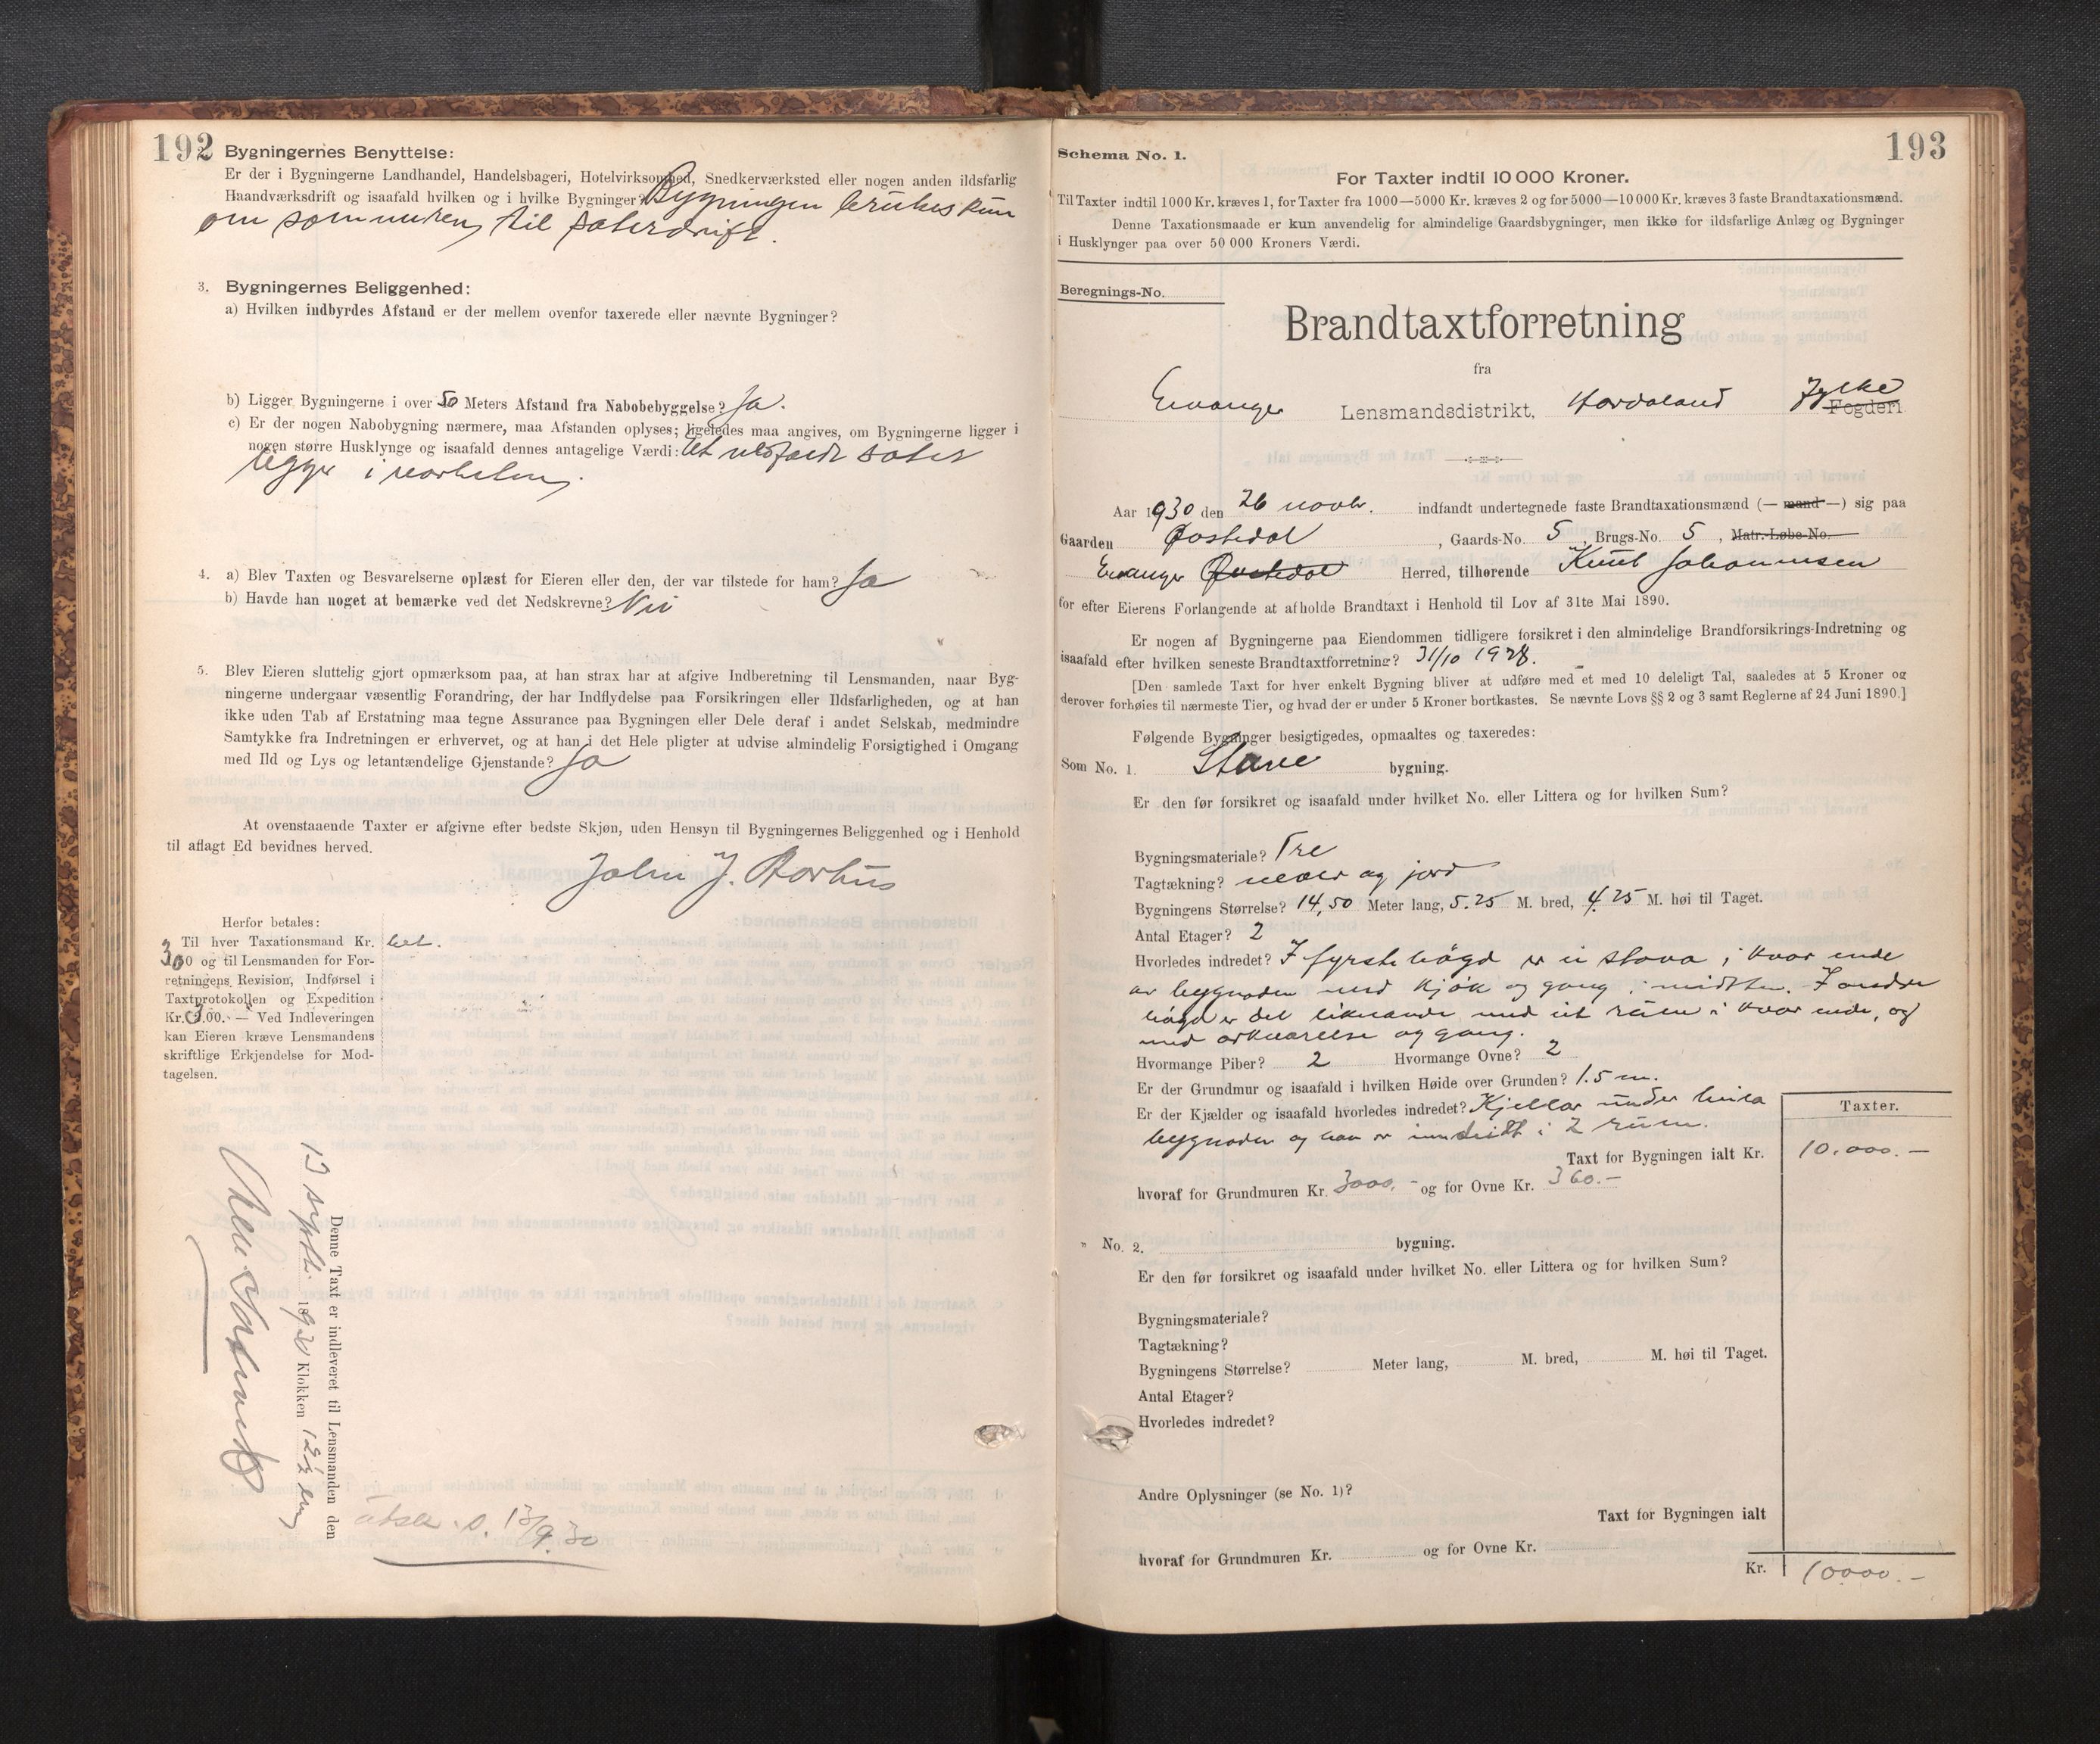 192
Bygningernes Benyttelse:
Er der i Bygningerne Landhandel, Handelsbageri, Hotelvirksomhed, Snedkerværksted eller nogen anden ildsfarlig
Haandværksdrift og isaafald hvilken og i hvilke Bygninger? Bygningen brukes kun
om sommeren til säterdrift.
3. Bygningernes Beliggenhed:
a) Hvilken indbyrdes Afstand er der mellem ovenfor taxerede eller nævnte Bygninger?
b) Ligger Bygningerne i over 50 Meters Afstand fra Nabobebyggelse? Ja.
c) Er der nogen Nabobygning nærmere, maa Afstanden oplyses; ligeledes maa angives, om Bygningerne ligger i
nogen større Husklynge og isaafald dennes antagelige Værdi:
ligger i
4. a) Blev Taxten og Besvarelserne oplæst for Eieren eller den, der var tilstede for ham? Ja
b) Havde han noget at bemærke ved det Nedskrevne? Nei
5. Blev Eieren sluttelig gjort opmærksom paa, at han strax har at afgive Indberetning til Lensmanden, naar Byg-
ningerne undergaar væsentlig Forandring, der har Indflydelse paa Forsikringen eller Ildsfarligheden, og at han
ikke uden Tab af Erstatning maa tegne Assurance paa Bygningen eller Dele deraf i andet Selskab, medmindre
Samtykke fra Indretningen er erhvervet, og at han i det Hele pligter at udvise almindelig Forsigtighed i Omgang
med Ild og Lys og letantændelige Gjenstande? Ja
At ovenstaaende Taxter er afgivne efter bedste Skjøn, uden Hensyn til Bygningernes Beliggenhed og i Henhold
til aflagt Ed bevidnes herved.
John J. Rørhus
Herfor betales:
Til hver Taxationsmand Kr. bet.
3.00 og til Lensmanden for For-
retningens Revision, Indførsel i
Taxtprotokollen og Expedition
Kr. 3.00. — Ved Indleveringen
kan Eieren kræve Lensmandens
skriftlige Erkjendelse for Mod-
tagelsen.
Denne Taxt er indleveret til Lensmanden den
13 septbr. 1930 Klokken 12½ em
utsk. s. 13/9.30
193
Schema No. 1.
For Taxter indtil 10 000 Kroner.
Til Taxter indtil 1000 Kr. kræves 1, for Taxter fra 1000—5000 Kr. kræves 2 og for 5000—10000 Kr. kræves 3 faste Brandtaxationsmænd.
Denne Taxationsmaade er kun anvendelig for almindelige Gaardsbygninger, men ikke for ildsfarlige Anlæg og Bygninger
i Husklynger paa over 50 000 Kroners Værdi.
Beregnings-No.
Brandtaxtforretning
fra
Evanger Lensmandsdistrikt, Hordaland Fylke Fogderi
Aar 1930 den 26 novbr. indfandt undertegnede faste Brandtaxationsmænd (— mand —) sig paa
Gaarden Øvstedal, Gaards-No. 5, Brugs-No. 5, Matr.-Løbe-No.
Evanger Øvstedal Herred, tilhørende Knut Johannesen
for efter Eierens Forlangende at afholde Brandtaxt i Henhold til Lov af 31te Mai 1890.
Er nogen af Bygningerne paa Eiendommen tidligere forsikret i den almindelige Brandforsikrings-Indretning og
isaafald efter hvilken seneste Brandtaxtforretning? 31/10 1928.
[Den samlede Taxt for hver enkelt Bygning bliver at udføre med et med 10 deleligt Tal, saaledes at 5 Kroner og
derover forhøies til nærmeste Tier, og hvad der er under 5 Kroner bortkastes. Se nævnte Lovs §§ 2 og 3 samt Reglerne af 24 Juni 1890.]
Følgende Bygninger besigtigedes, opmaaltes og taxeredes:
Som No. 1. Stove bygning.
Er den før forsikret og isaafald under hvilket No. eller Littera og for hvilken Sum?
Bygningsmateriale? Tre
Tagtækning? never og jord
Bygningens Størrelse? 14,50 Meter lang, 5.25 M. bred, 4.25 M. høi til Taget.
Antal Etager? 2
Hvorledes indredet? I fyrste høgd er ei stova i kvar ende
av bygnaden med kjøk og gang i midten. I andre
høgd er det liknande med eit rum i kvar ende, og
med arkværelse og gang.
Hvormange Piber? 2 Hvormange Ovne? 2
Er der Grundmur og isaafald i hvilken Høide over Grunden? 1.5 m.
Er der Kjælder og isaafald hvorledes indredet? Kjellar under heila
bygnaden og han er inndeilt i 2 rum.
Taxter.
Taxt for Bygningen ialt Kr. 10.000.—
hvoraf for Grundmuren Kr. 3000.— og for Ovne Kr. 360.—
" No. 2. bygning.
Er den før forsikret og isaafald under hvilket No. eller Littera og for hvilken Sum?
Bygningsmateriale?
Tagtækning?
Bygningens Størrelse? Meter lang, M. bred, M. høi til Taget.
Antal Etager?
Hvorledes indredet?
Andre Oplysninger (se No. 1)?
Taxt for Bygningen ialt
hvoraf for Grundmuren Kr. og for Ovne Kr.
Kr. 10000.—